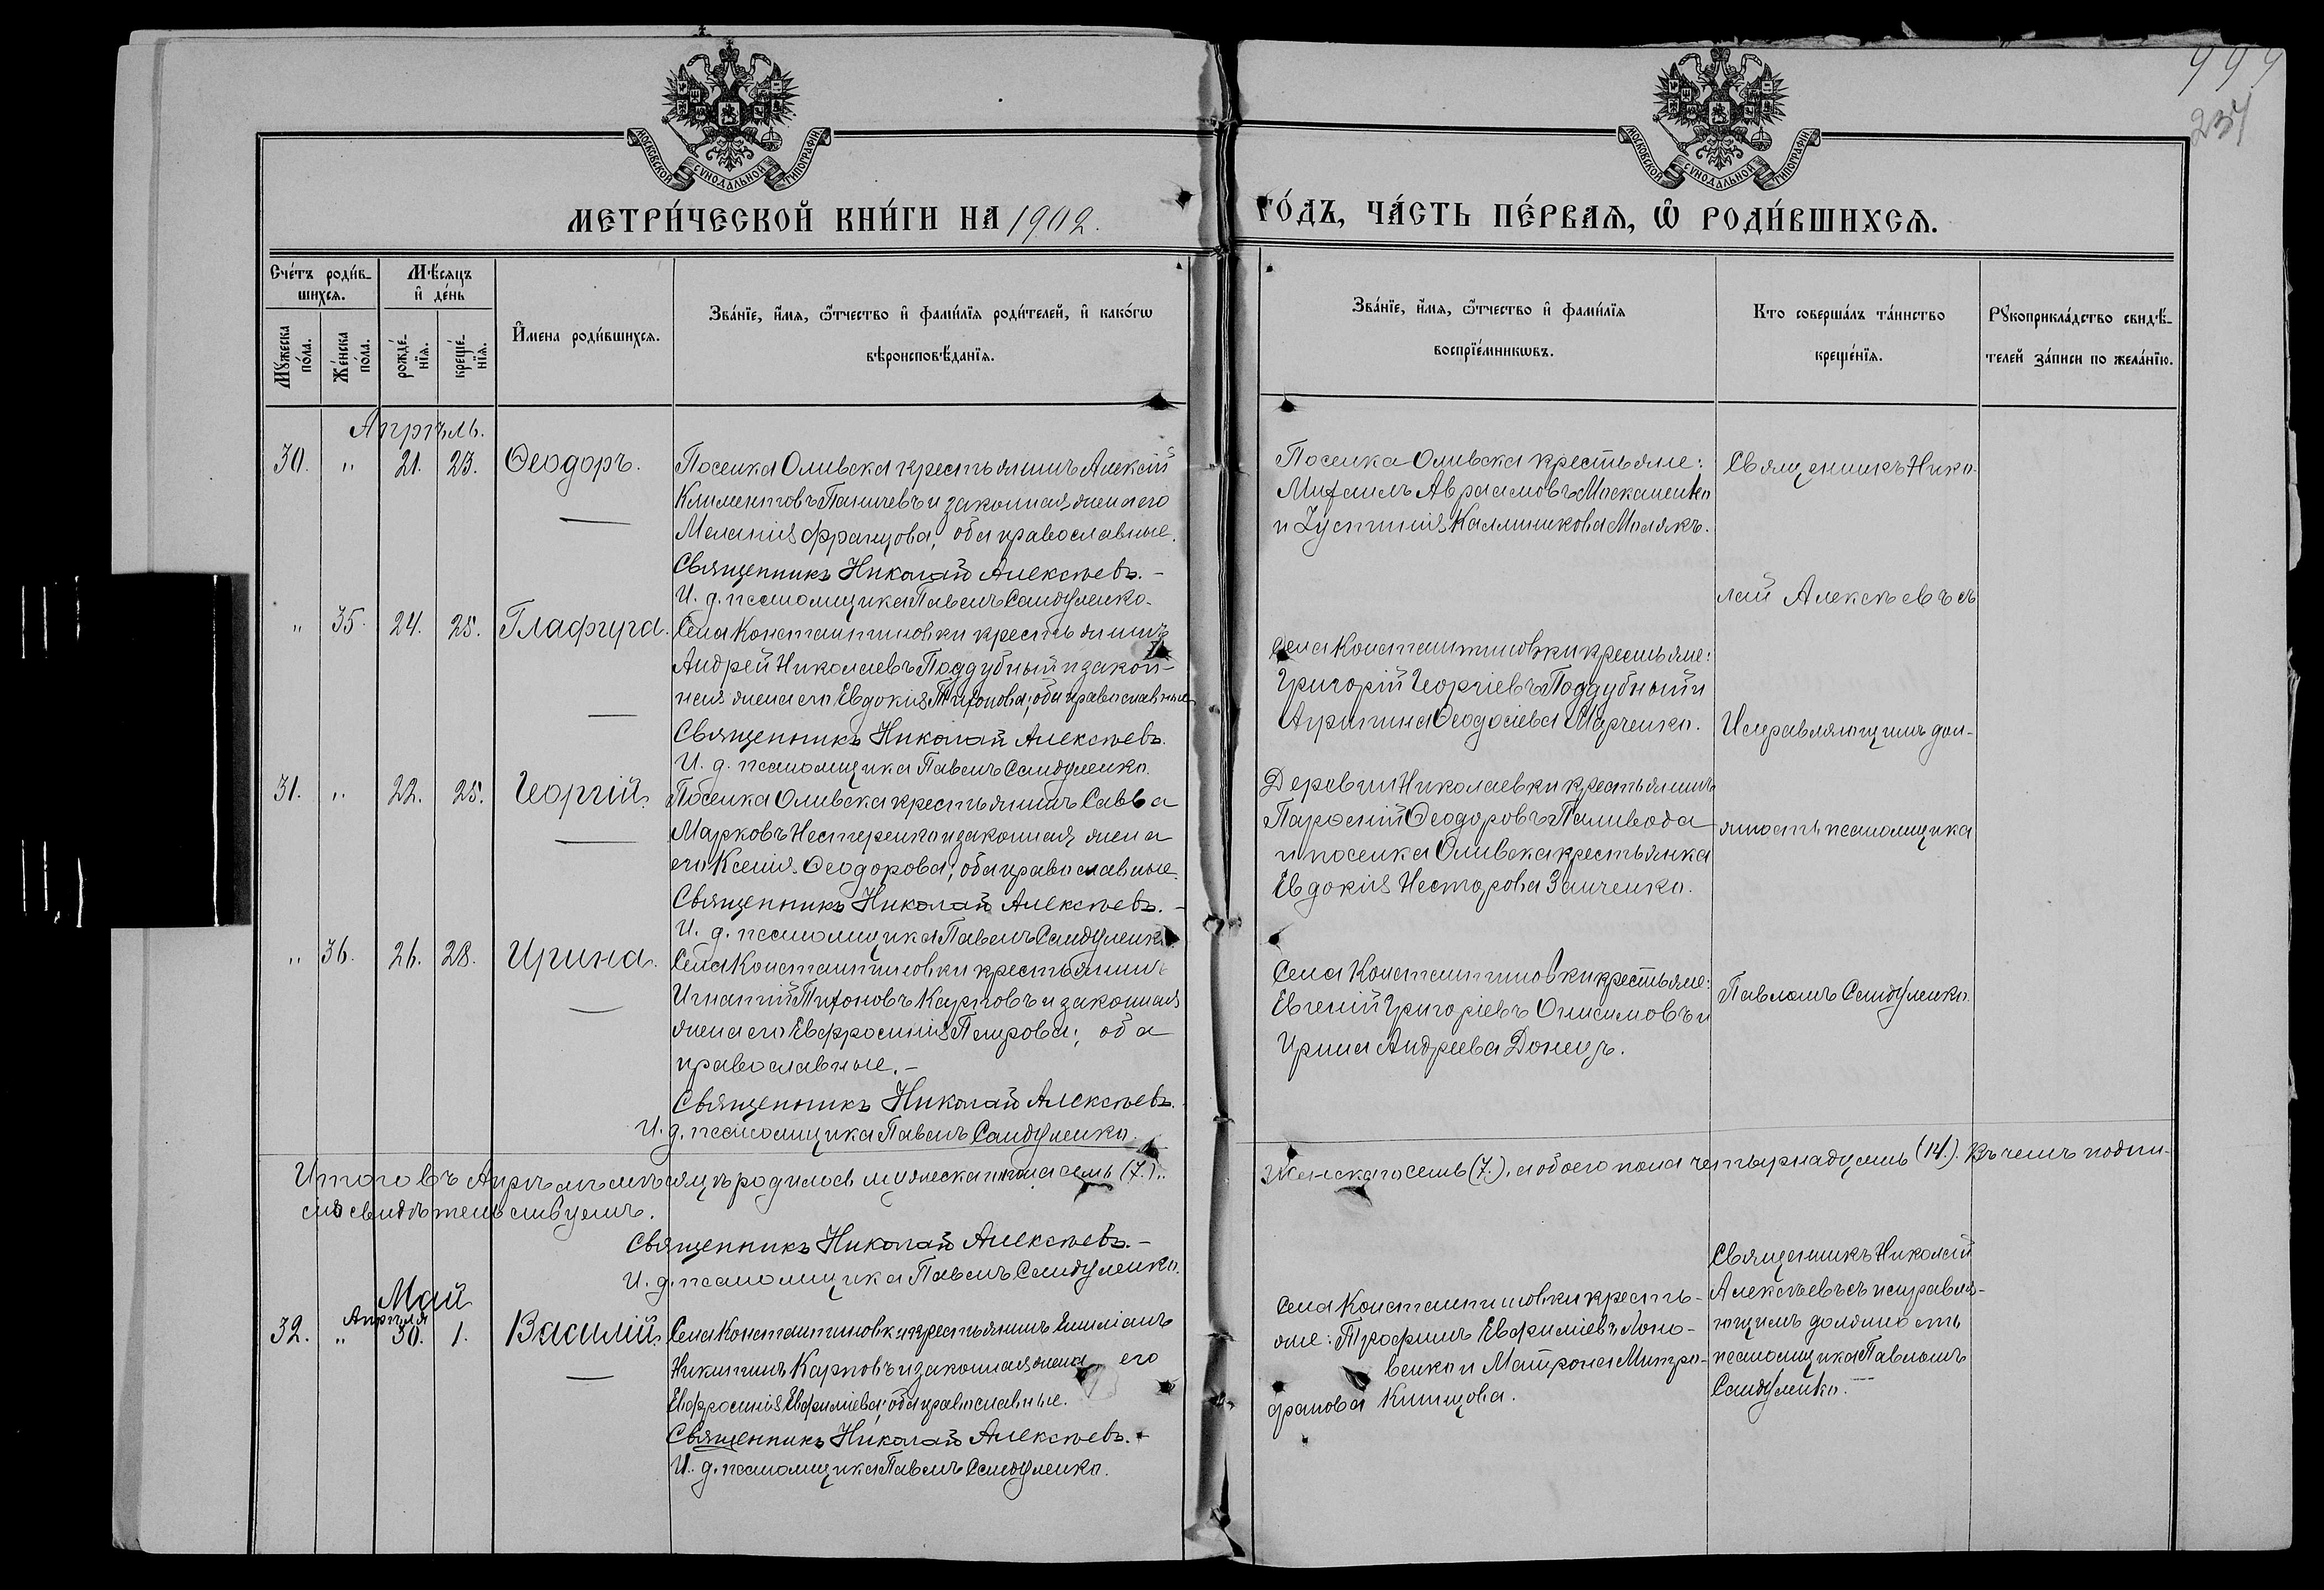 999
237
МОСКОВСКОЙ СѴНОДАЛЬНОЙ ТИПОГРАФІИ
МОСКОВСКОЙ СѴНОДАЛЬНОЙ ТИПОГРАФІИ
МЕТРИ́ЧЕСКОЙ КНИ́ГИ НА 1902.
ГО́ДЪ, ЧА́СТЬ ПЕ́РВАѦ, Ѽ РОДИ́ВШИХСѦ.
Сче́тъ роди́в-
шихсѧ.
Мѣ́сѧцъ
и҆ де́нь
Мꙋ́жеска
по́ла.
Же́нска
по́ла.
рожде́-
нїѧ.
креще́-
нїѧ.
И҆мена роди́вшихсѧ.
Зва́нїе, и҆́мѧ, ѻ҆́тчество и҆ фами́лїѧ роди́телей, и҆ како́гѡ
вѣроисповѣ́данїѧ.
Зва́нїе, и҆́мѧ, ѻ҆́тчество и҆ фами́лїѧ
воспрїе́мникѡвъ.
Кто соверша́лъ та́инство
креще́нїѧ.
Рꙋкоприкла́дство свидѣ́-
телей за́писи по жела́нїю.
Апрѣль.
30. " 21. 23. Ѳеодоръ.
Поселка Оливска крестьянинъ Алексій
Климентовъ Паничевъ и законная жена его
Меланія Францова; оба православные.
Священникъ Николай Алексѣевъ.-
И. д. псаломщика Павелъ Сандуленко.
Поселка Оливска крестьяне:
Михаилъ Авраамовъ Москаленко
и Іустинія Каллиникова Молякъ.
Священникъ Нико-
лай Алексѣевъ съ
" 35. 24. 25. Глафира.
Села Константиновки крестьянинъ
Андрей Николаевъ Поддубный и закон-
ная жена его Евдокія Тихонова; оба православные
Священникъ Николай Алексѣевъ.
И. д. псаломщика Павелъ Сандуленко.
Села Константиновки крестьяне:
Григорій Георгіевъ Поддубный и
Агрипина Ѳеодосіева Марченко.
Исправляющимъ дол-
31. " 22. 25. Георгій.
Поселка Оливска крестьянинъ Савва
Марковъ Нестеренко и законная жена
его Ксенія Ѳеодорова; оба православные.
Священникъ Николай Алексѣевъ.-
И. д. псаломщика Павелъ Сандуленко.
Деревни Николаевки крестьянинъ
Ѳеодоровъ Паливода
и поселка Оливска крестьянка
Евдокія Несторова Заиченко.
жность псаломщика
" 36. 26. 28. Ирина.
Села Константиновки крестьянинъ
Игнатій Тихоновъ Карповъ и законная
жена его Евфросинія Петрова; оба
православные.-
Священникъ Николай Алексѣевъ.
И. д. псаломщика Павелъ Сандуленко.
Села Константиновки крестьяне:
Евгеній Григоріевъ Онисимовъ и
Ирина Андреева Донецъ.
Павломъ Сандуленко.
Итого въ Апрѣлѣ мѣсяцѣ родилось мужеска пола семь (7.)..
Женскаго семь (7.), а обоего пола четырнадцать (14.). Въ чемъ подпи-
сію свидѣтельствуемъ.
Священникъ Николай Алексѣевъ.-
И. д. псаломщика Павелъ Сандуленко.
Май
Апрѣля
32. " 30. 1. Василій.
Села Константиновки крестьянинъ Емиліанъ
Никитинъ Карповъ и законная жена его
Евфросинія Евфиміева; оба православные.
Священникъ Николай Алексѣевъ.-
И. д. псаломщика Павелъ Сандуленко.
Села Константиновки кресть-
яне: Трофимъ Евфиміевъ Логв-
венко и Матрона Митро-
фанова Китцова.
Священникъ Николай
Алексѣевъ съ исправля-
ющимъ должность
псаломщика Павломъ
Сандуленко.-